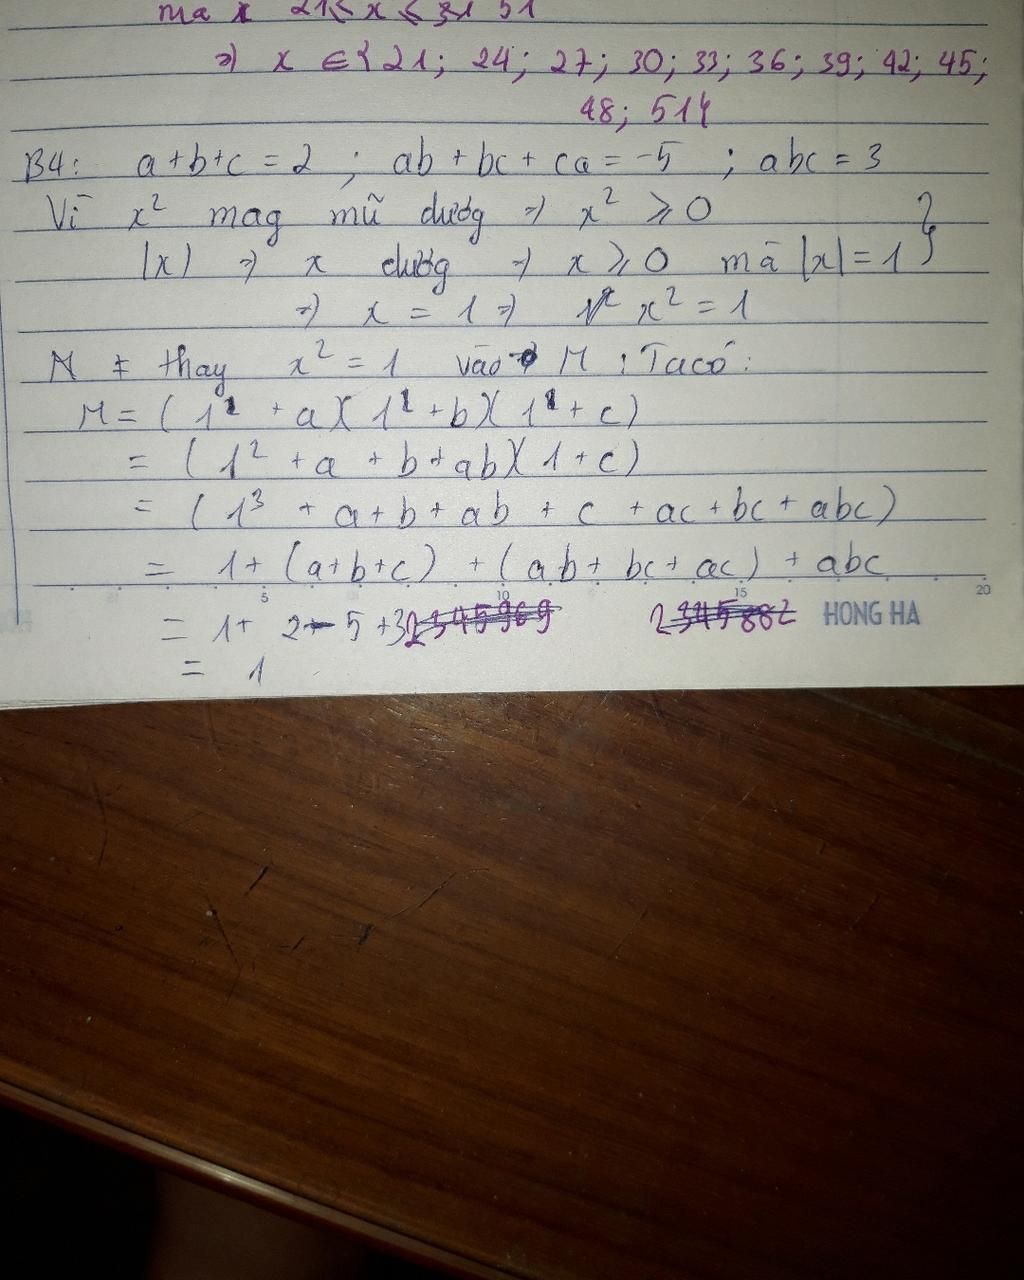 mà x 21 ≤ x ≤ 51
=> x ∈ { 21; 24; 27; 30; 33; 36; 39; 42; 45;
48; 51}
B4: a+b+c = 2 ; ab + bc + ca = -5 ; abc = 3
Vì x² mag mũ dương => x² ≥ 0
|x| => x dương => x ≥ 0 mà |x| = 1 }
=> x = 1 => x² = 1
thay x² = 1 vào M : Ta có:
M = ( 1 + a)( 1 + b)( 1 + c)
= ( 1² + a + b + ab)( 1 + c)
= ( 1³ + a + b + ab + c + ac + bc + abc)
= 1 + (a+b+c) + ( ab + bc + ac) + abc
5 10 15 20
= 1 + 2 - 5 + 3 HONG HA
= 1